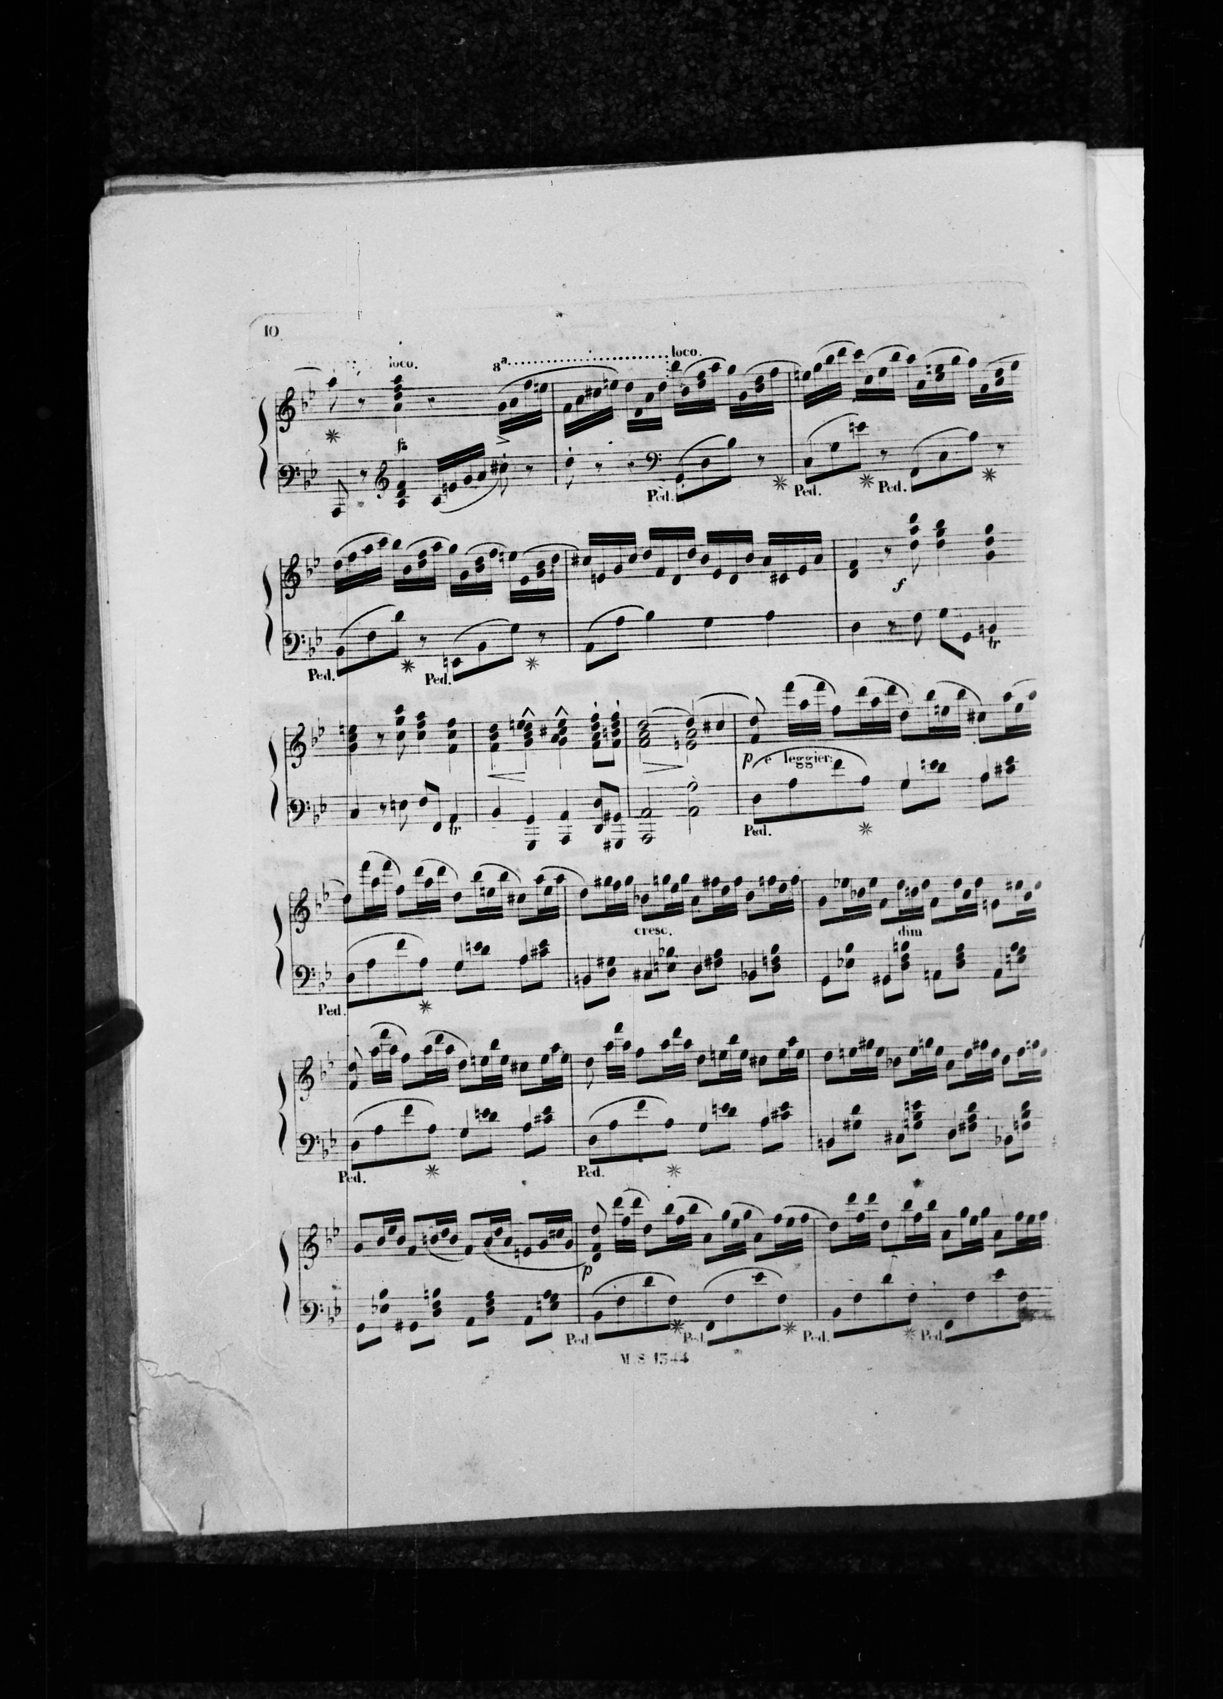 10
loco. 8ª loco.
fz
Ped. Ped. Ped.
f
Ped. Ped. tr
p e leggier:
tr Ped.
cresc. dim
Ped.
Ped. Ped.
p
Ped. Ped. Ped. Ped.
M.S. 1344